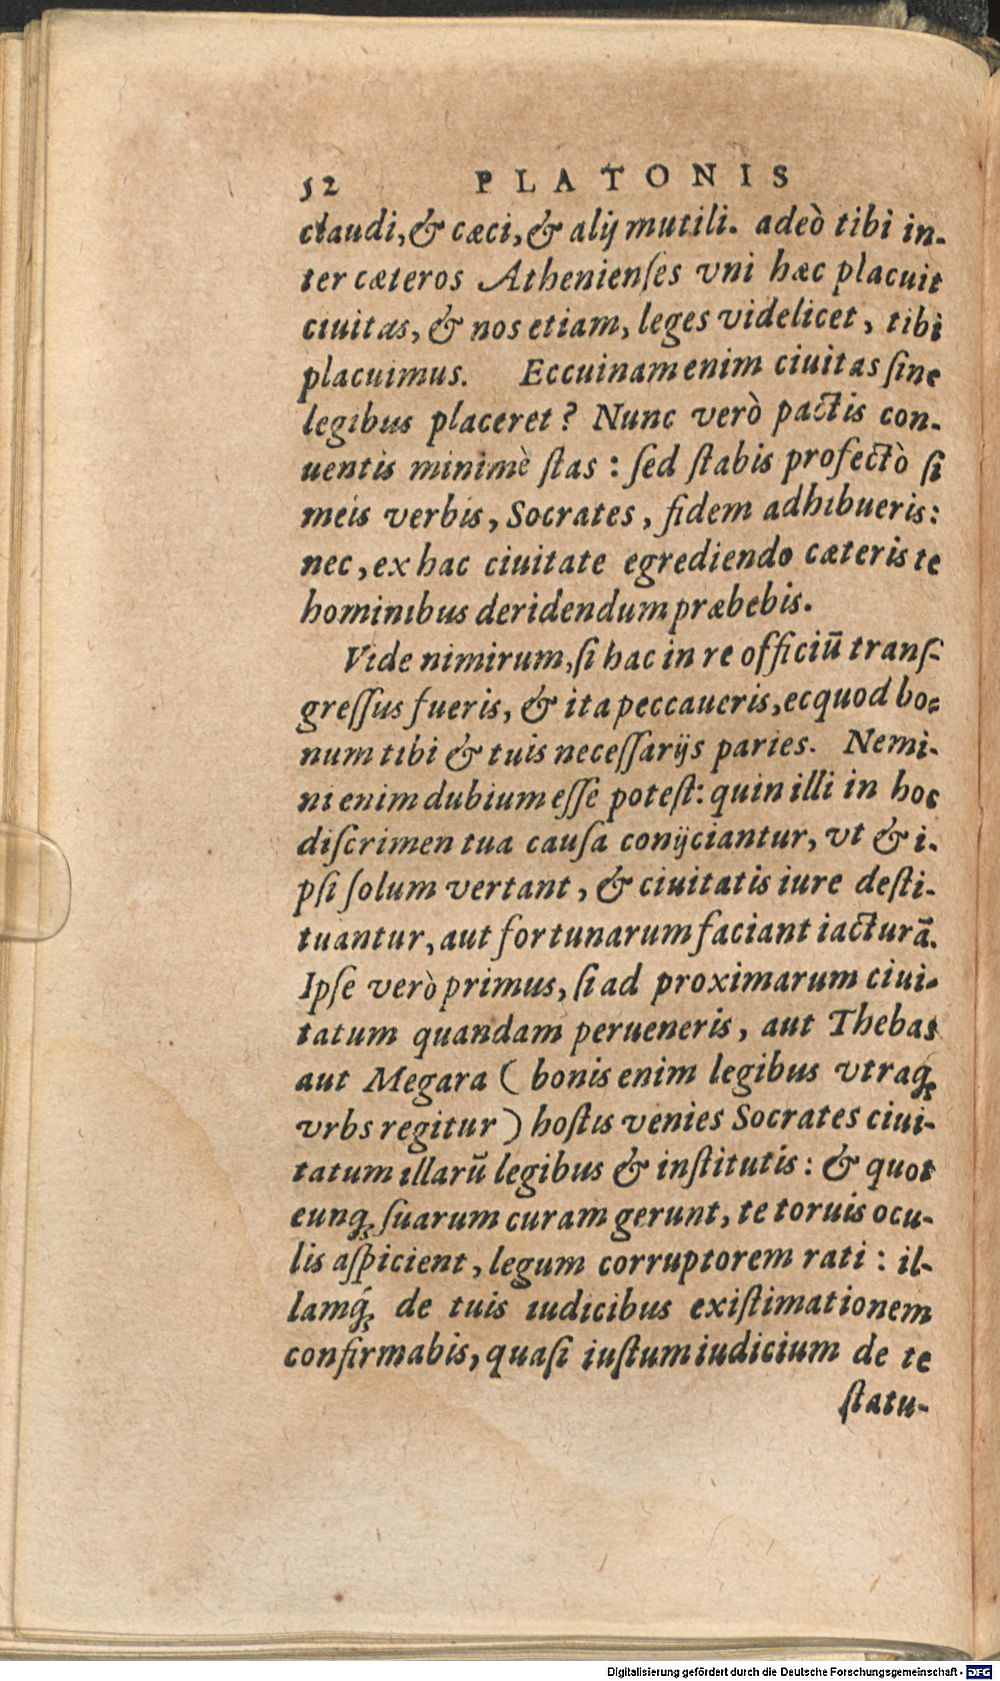 52 PLATONIS
claudi, & cæci, & alij mutili. adeò tibi in-
ter cæteros Athenienſes vni hæc placuit
ciuitas, & nos etiam, leges videlicet, tibi
placuimus. Eccuinam enim ciuitas ſine
legibus placeret? Nunc verò pactis con-
uentis minimè ſtas: ſed ſtabis profectò ſi
meis verbis, Socrates, fidem adhibueris:
nec, ex hac ciuitate egrediendo cæteris te
hominibus deridendum præbebis.
Vide nimirum, ſi hac in re officiū tranſ-
greſſus fueris, & ita peccaueris, ecquod bo-
num tibi & tuis neceſſarijs paries. Nemi-
ni enim dubium eſſe poteſt: quin illi in hoc
diſcrimen tua cauſa conijciantur, vt & i-
pſi ſolum vertant, & ciuitatis iure deſti-
tuantur, aut fortunarum faciant iacturā.
Ipſe verò primus, ſi ad proximarum ciui-
tatum quandam perueneris, aut Thebas
aut Megara (bonis enim legibus vtraq;
vrbs regitur) hoſtis venies Socrates ciui-
tatum illarū legibus & inſtitutis: & quot
eunq; ſuarum curam gerunt, te toruis ocu-
lis aſpicient, legum corruptorem rati: il-
lamq́; de tuis iudicibus exiſtimationem
confirmabis, quaſi iuſtum iudicium de te
ſtatu-
Digitalisierung gefördert durch die Deutsche Forschungsgemeinschaft - DFG